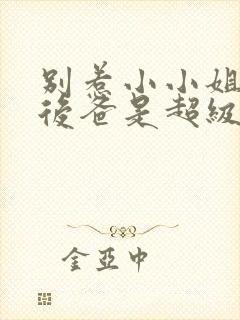 别惹小小姐
後爸是超級
金亚中